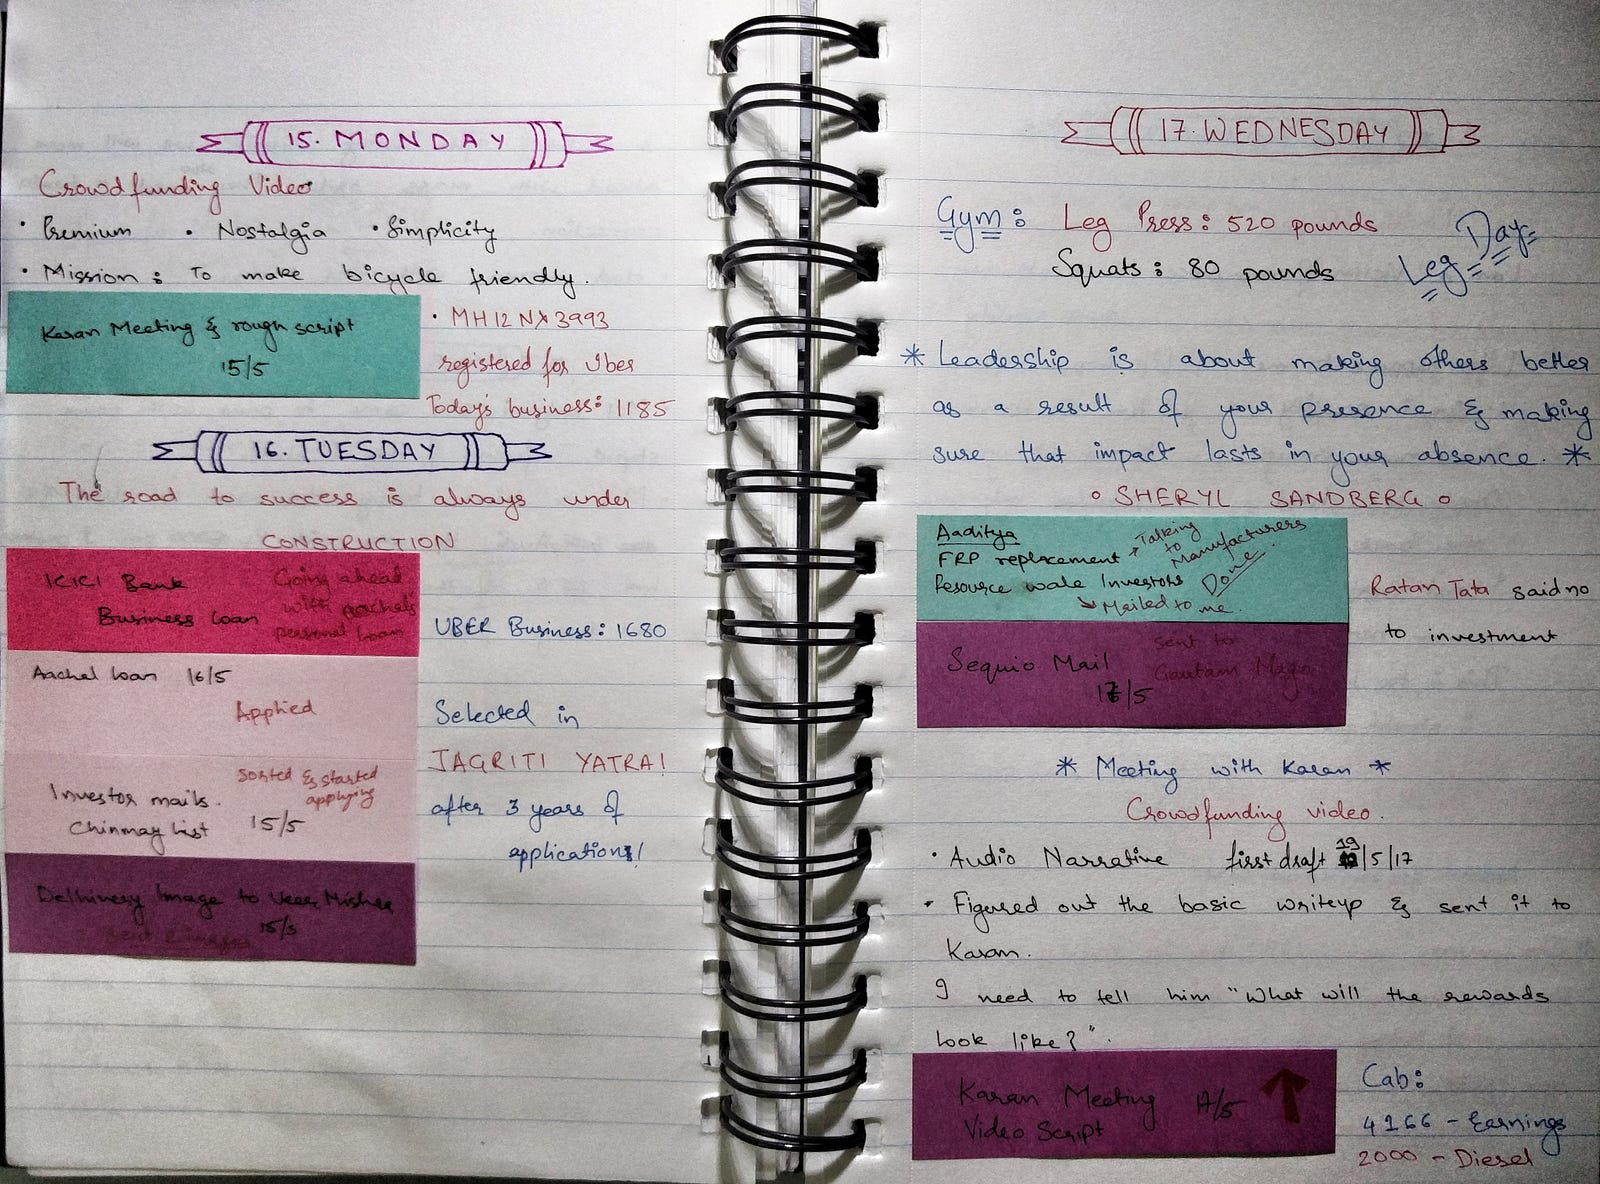 15. MONDAY
Crowdfunding Video
• Premium • Nostalgia • Simplicity
• Mission: To make bicycle friendly.
Karan Meeting & rough script
15/5
• MH12 NX 3993
registered for Uber
Today's business: 1185
16. TUESDAY
The road to success is always under
CONSTRUCTION
ICICI Bank
Business Loan
Going ahead
with Aachal's
personal loan
UBER Business: 1680
Aachal loan 16/5
Applied
Selected in
JAGRITI YATRA!
after 3 years of
application!
Sorted & started
applying
Investor mails.
Chinmay List 15/5
Delhivery Image to Veer Mishra
15/5
17. WEDNESDAY
Gym: Leg Press: 520 pounds
Squats: 80 pounds
Leg Day
* Leadership is about making others better
as a result of your presence & making
sure that impact lasts in your absence. *
• SHERYL SANDBERG •
Aaditya
FRP replacement → Talking
to
Manufacturers
Resource wale Investors
Done.
↘ Mailed to me.
Ratan Tata said no
to investment
Sequio Mail
sent to
Gautam
17/5
* Meeting with Karan *
Crowdfunding video.
• Audio Narrative first draft 19/5/17
• Figured out the basic writeup & sent it to
Karan.
I need to tell him "What will the rewards
look like?".
Karan Meeting 17/5
Video Script
Cab:
4166 - Earnings
2000 - Diesel